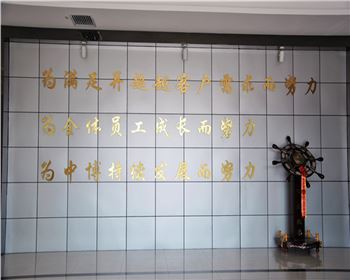 为满足并超越客户需求而努力
为全体员工成长而努力
为中博持续发展而努力